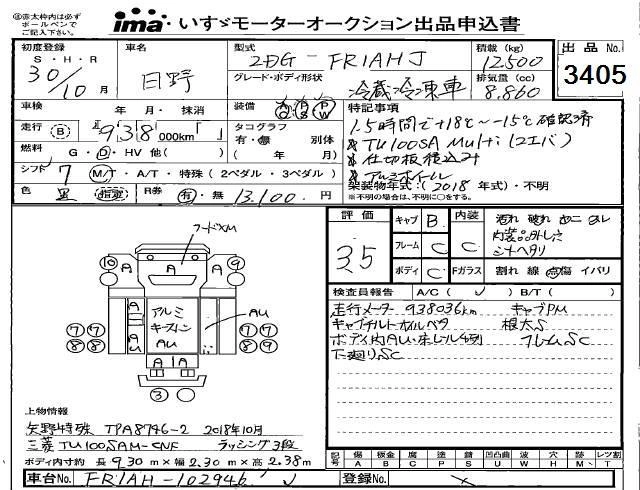 ※赤太枠内は必ず
ボールペンで
ご記入下さい。
ima いすゞモーターオークション出品申込書
初度登録 S・H・R 30/10月
車名 日野
型式 2DG-FR1AHJ
積載(kg) 12500
出品No. 3405
グレード・ボディ形状 冷蔵冷凍車
排気量(cc) 8.860
車検 年・月・抹消
装備 AC PS PW
特記事項
1.5時間で+18℃~-15℃確認済
走行 B 938000km「」
タコグラフ 有・無 別体 ( 年 月)
*TU100SA Multi(2エバ)
燃料 G・D・HV 他( )
*仕切板積込み
シフト 7 M/T・A/T・特殊(2ペダル・3ペダル)
*アルミホイール
架装物年式:(2018年式)・不明
※不明の場合は、不明に○をする。
色 黒 指定
R券 有・無 13,100.円
評価 3.5
キャブ B
内装 C
フレーム C
ボディ C
Fガラス 割れ 線 点傷 イバリ
汚れ 破れ
内装品外し穴
シートヘタリ
検査員報告 A/C( ) B/T( )
走行メーター 938036km キャブPM
キャブチルトオイルベタ 根太S
フレームSC
下廻りSC
フードXM
10 A A A 9
アルミ
キーストン
AU
A
AU
AU
7 7 7 7
8 8 8 9
A A
3
上物情報
矢野特殊 TPA8746-2 2018年10月
三菱 TU100SAM-CNF ラッシング3段
ボディ内寸約 長 9.30m×幅 2.30m×高 2.38m
記号 傷 A 板金 B 腐 C 塗 P 錆 S 凹凸曲 U 波 W 穴 H 跡 M レツ割 T
車台No. FR1AH-102946
登録No.